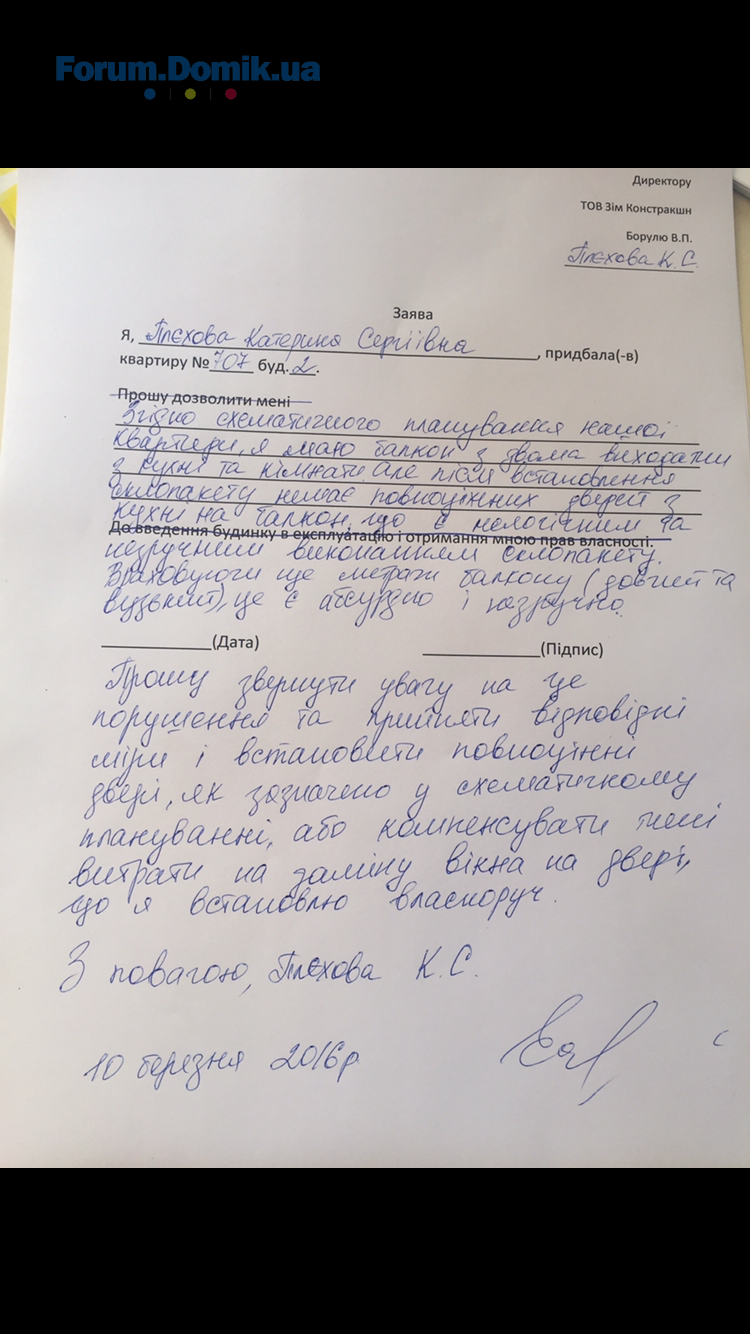 Forum.Domik.ua
Директору
ТОВ Зім Констракшн
Борулю В.П.
Плєхова К.С.
Заява
Я, Плєхова Катерина Сергіївна, придбала(-в)
квартиру №707 буд. 2.
Прошу дозволити мені
Згідно схематичного планування нашої
квартири, я маю балкон з двома виходами
з кухні та кімнати. Але після встановлення
склопакету немає повноцінних дверей з
кухні на балкон, що є нелогічним та
До введення будинку в експлуатацію і отримання мною прав власності.
незручним виконанням склопакету.
Враховуючи ще метраж балкону (довгий та
вузький), це є абсурдно і незручно.
___________(Дата)
____________(Підпис)
Прошу звернути увагу на це
порушення та прийняти відповідні
міри і встановити повноцінні
двері, як зазначено у схематичному
плануванні, або компенсувати мені
витрати на заміну вікна на двері,
що я встановлю власноруч.
З повагою, Плєхова К.С.
10 березня 2016р